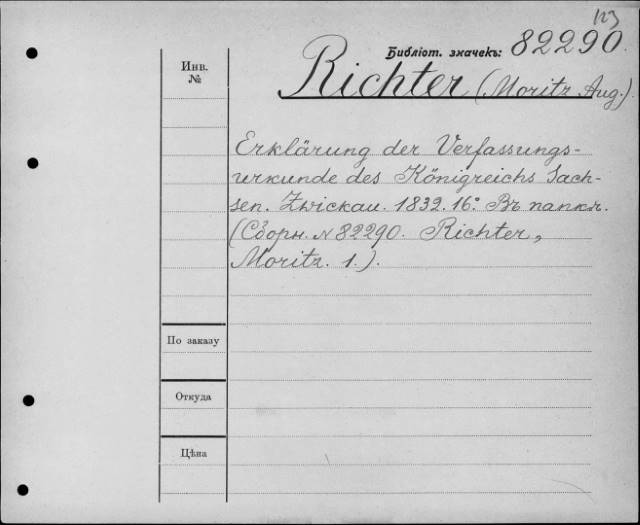 123
Библіот. значекъ: 82290.
Инв.
№
Richter (Moritz Aug.).
Erklärung der Verfassungs-
urkunde des Königreichs Sach-
sen. Zwickau. 1832. 16°. Въ папкѣ.
(Сборн. N 82290. Richter,
Moritz. 1.).
По заказу
Откуда
Цѣна